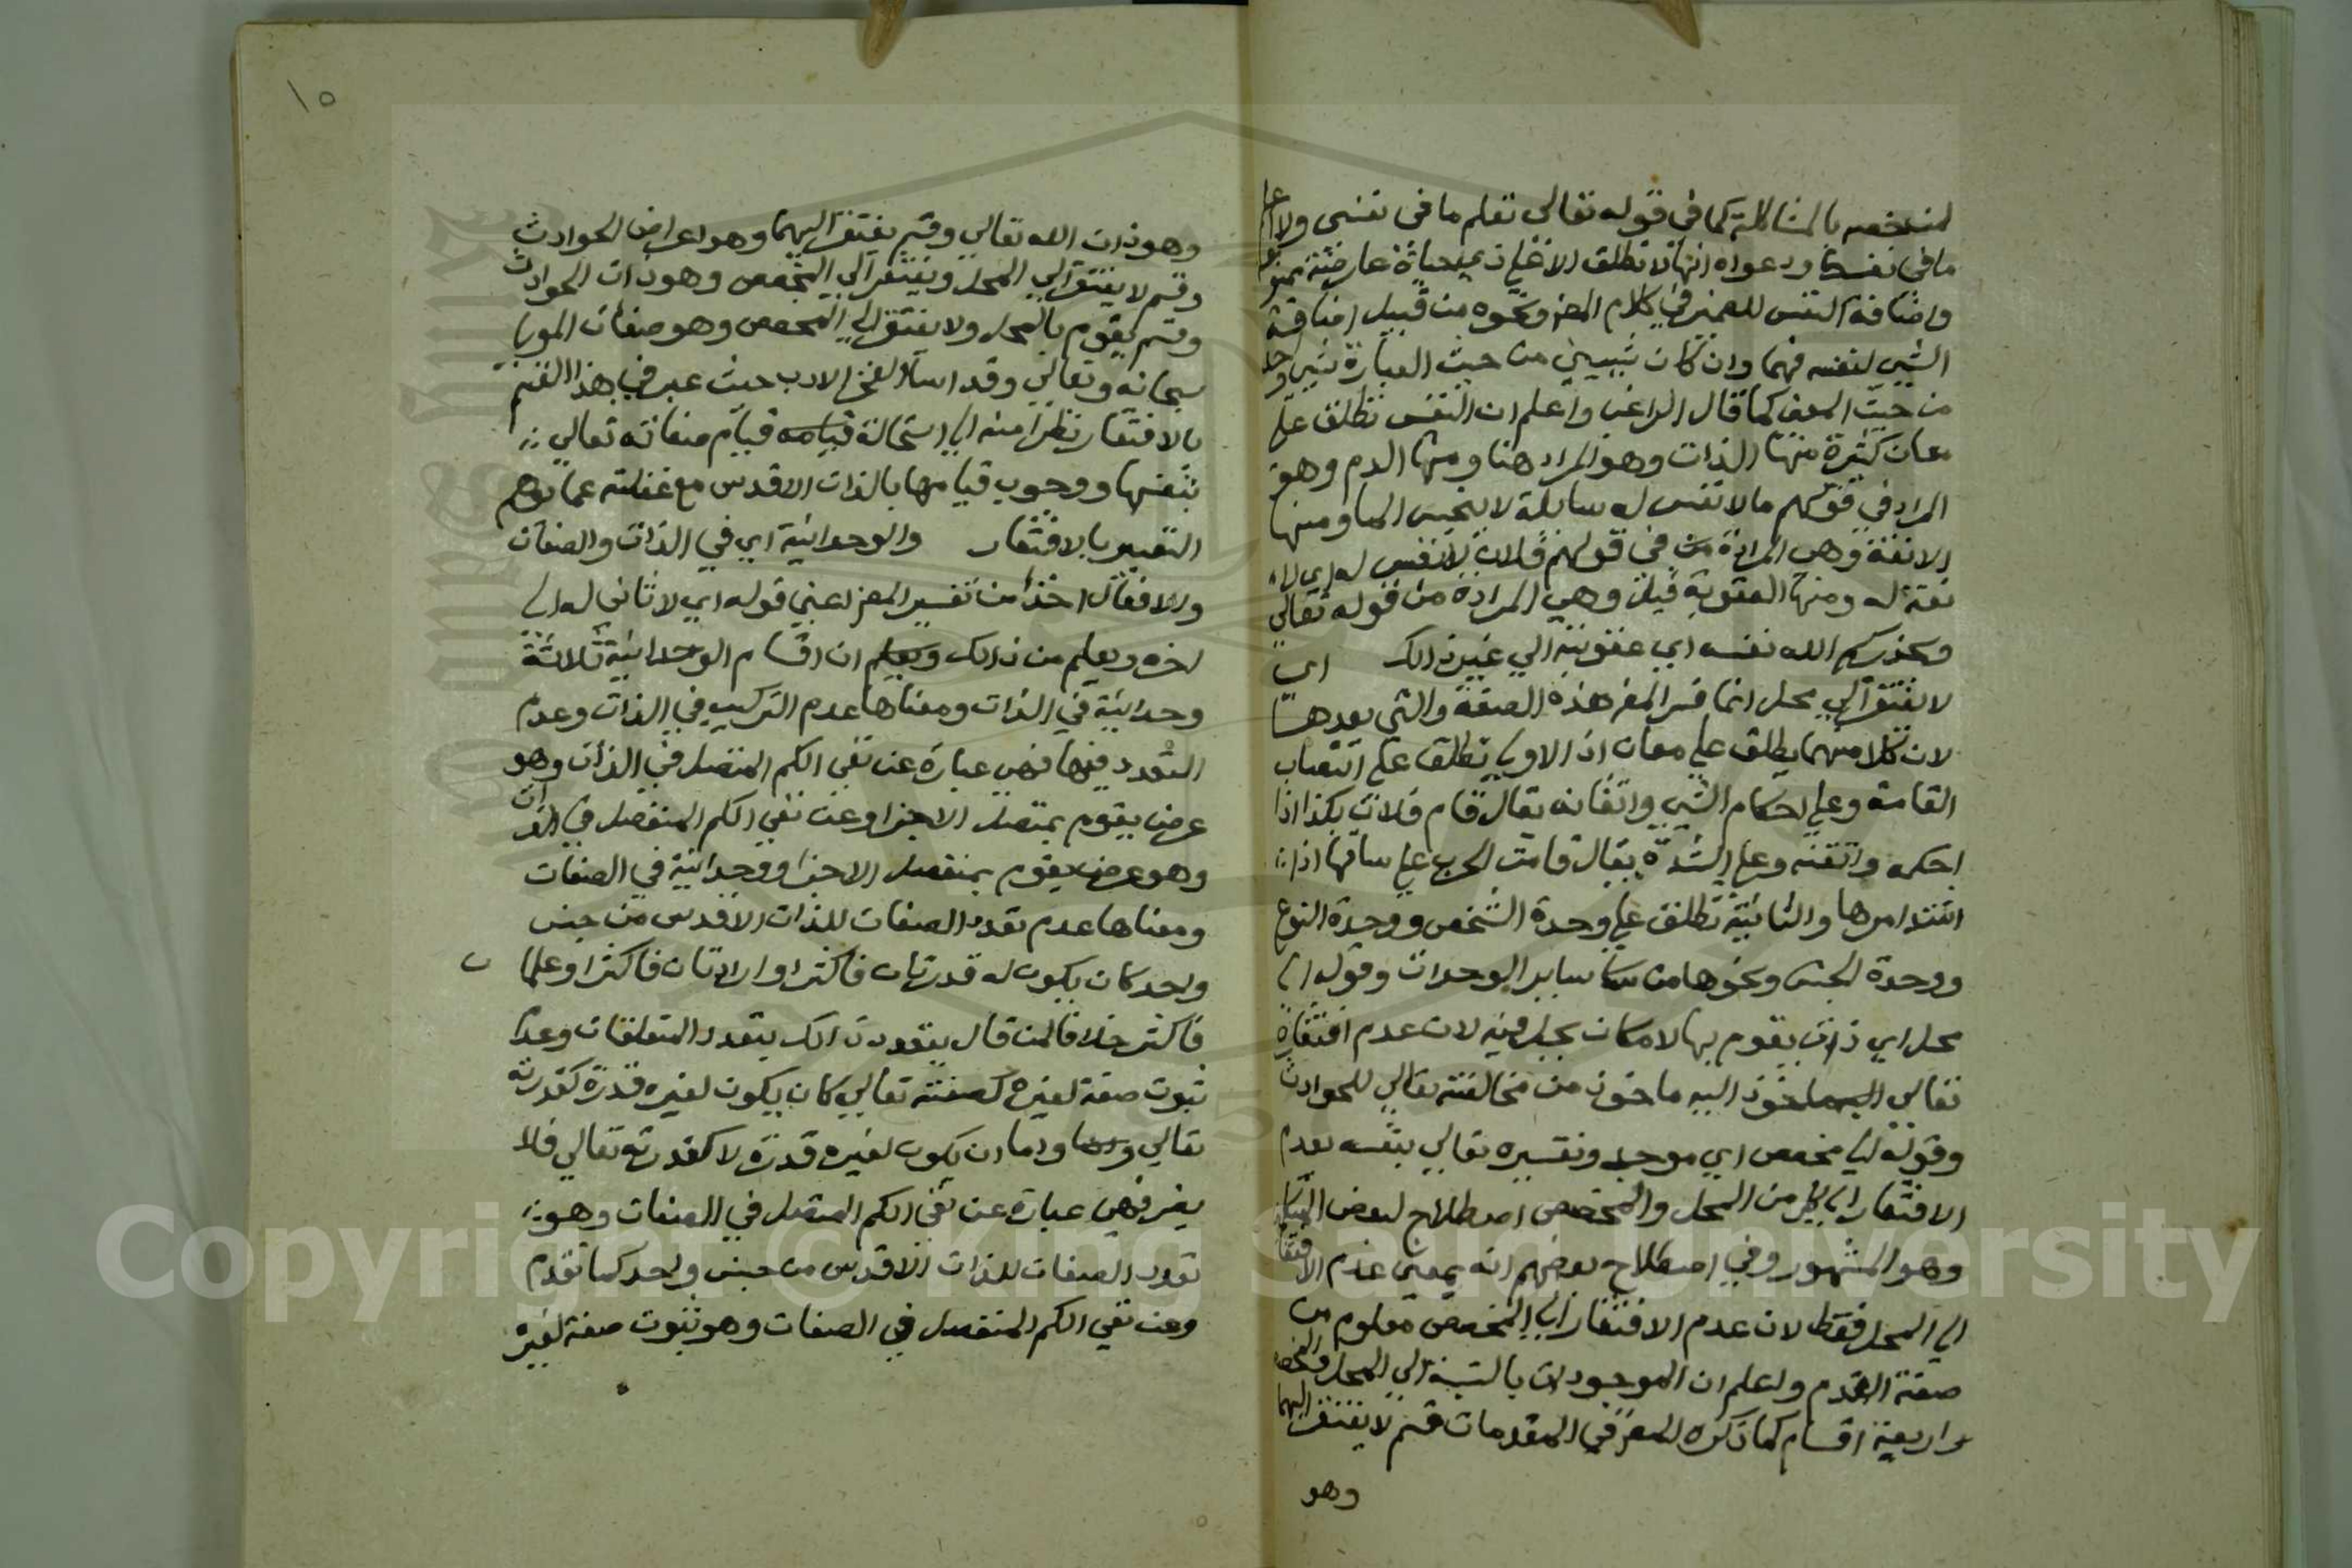 بالمشاكلة كما في قوله تعالى تعلم ما في نفسي ولا اعلم
ما في نفسك ودعواه انها لا تطلق الا على ذي حياة عارضة ممنوعة
واضافة النفس للضمير في كلام المص ونحوه من قبيل اضافة
الشي لنفسه فهما وان كان شيين من حيث العبارة شي واحد
من حيث المعنى كما قال الراغب واعلم ان النفس تطلق على
معان كثيرة منها الذات وهو المراد هنا ومنها الدم وهو
المراد في قولهم ما لا نفس له سايلة لا ينجس الما ومنها
الانفة وهي المرادة من في قولهم فلان لا نفس له اي لا
نفة له ومنها العقوبة قيل وهي المرادة من قوله تعالى
ويحذركم الله نفسه اي عقوبته الي غير ذالك اي
لا يفتقر الي محل انما فسر المص هذه الصفة والتي بعدها
لان كلا منهما يطلق على معان اذ الاولي تطلق على انتصاب
القامة وعلى احكام الشي واتقانه يقال قام فلان بكذا اذا
احكمه واتقنه وعلى الشدة يقال قامت الحرب على ساقها اذا
اشتد امرها والثانية تطلق على وحدة الشخص ووحدة النوع
ووحدة الجنس ونحوها من ساير الوحدات وقوله الي
محل اي ذات يقوم بها لا مكان يحل فيه لان عدم افتقاره
تعالي اليه ماخوذ من مخالفته تعالي للحوادث
وقوله الي مخصص اي موجد وتفسيره تعالي بنفسه بعدم
الافتقار الي كل من المحل والمخصص اصطلاح لبعض
وهو المشهور وفي اصطلاح بعضهم انه بمعني عدم الافتقار
الي المحل فقط لان عدم الافتقار الي المخصص معلوم من
صفة القدم واعلم ان الموجودات بالنسبة الي المحل والمخصص
اربعة اقسام كما ذكره المص في المقدمات قسم لا يفتقر اليهما
وهو
١٥
وهو ذات الله تعالي وقسم يفتقر اليهما وهو اعراض الحوادث
وقسم لا يفتقر الي المحل ويفتقر الي المخصص وهو ذات الحوادث
وقسم يقوم بالمحل ولا يفتقر الي المخصص وهو صفات المولي
سبحانه وتعالي وقد اساء الفخر الادب حيث عبر في هذا القسم
بالافتقار نظرا منه الي استحالة قيامه قيام صفاته تعالي
بنفسها ووجوب قيامها بالذات الاقدس مع غفلته عما يوهم
التعبير بالافتقار والوحدانية اي في الذات والصفات
والافعال اخذا من تفسير المص اعني قوله اي لا ثاني له الي
اخره ويعلم من ذالك ويعلم ان اقسام الوحدانية ثلاثة
وحدانية في الذات ومعناها عدم التركيب في الذات وعدم
التعدد فيها فهي عبارة عن نفي الكم المتصل في الذات وهو
عرض يقوم بمتصل الاجزا وعن نفي الكم المنفصل في الذات
وهو عرض يقوم بمنفصل الاجزا ووحدانية في الصفات
ومعناها عدم تعدد الصفات للذات الاقدس من جنس
واحد كان يكون له قدرتان فاكثر او ارادتان فاكثر او علمان
فاكثر خلافا لمن قال بتعدد ذالك بتعدد المتعلقات وعدم
ثبوت صفة لغيره كصفته تعالي كان يكون لغيره قدرة كقدرته
تعالي واما ان يكون لغيره قدرة لا كقدرته تعالي فلا
يضر فهي عبارة عن نفي الكم المتصل في الصفات وهو
تعدد الصفات للذات الاقدس من جنس واحد كما تقدم
وعن نفي الكم المنفصل في الصفات وهو ثبوت صفة لغيره
Copyright © King Saud University